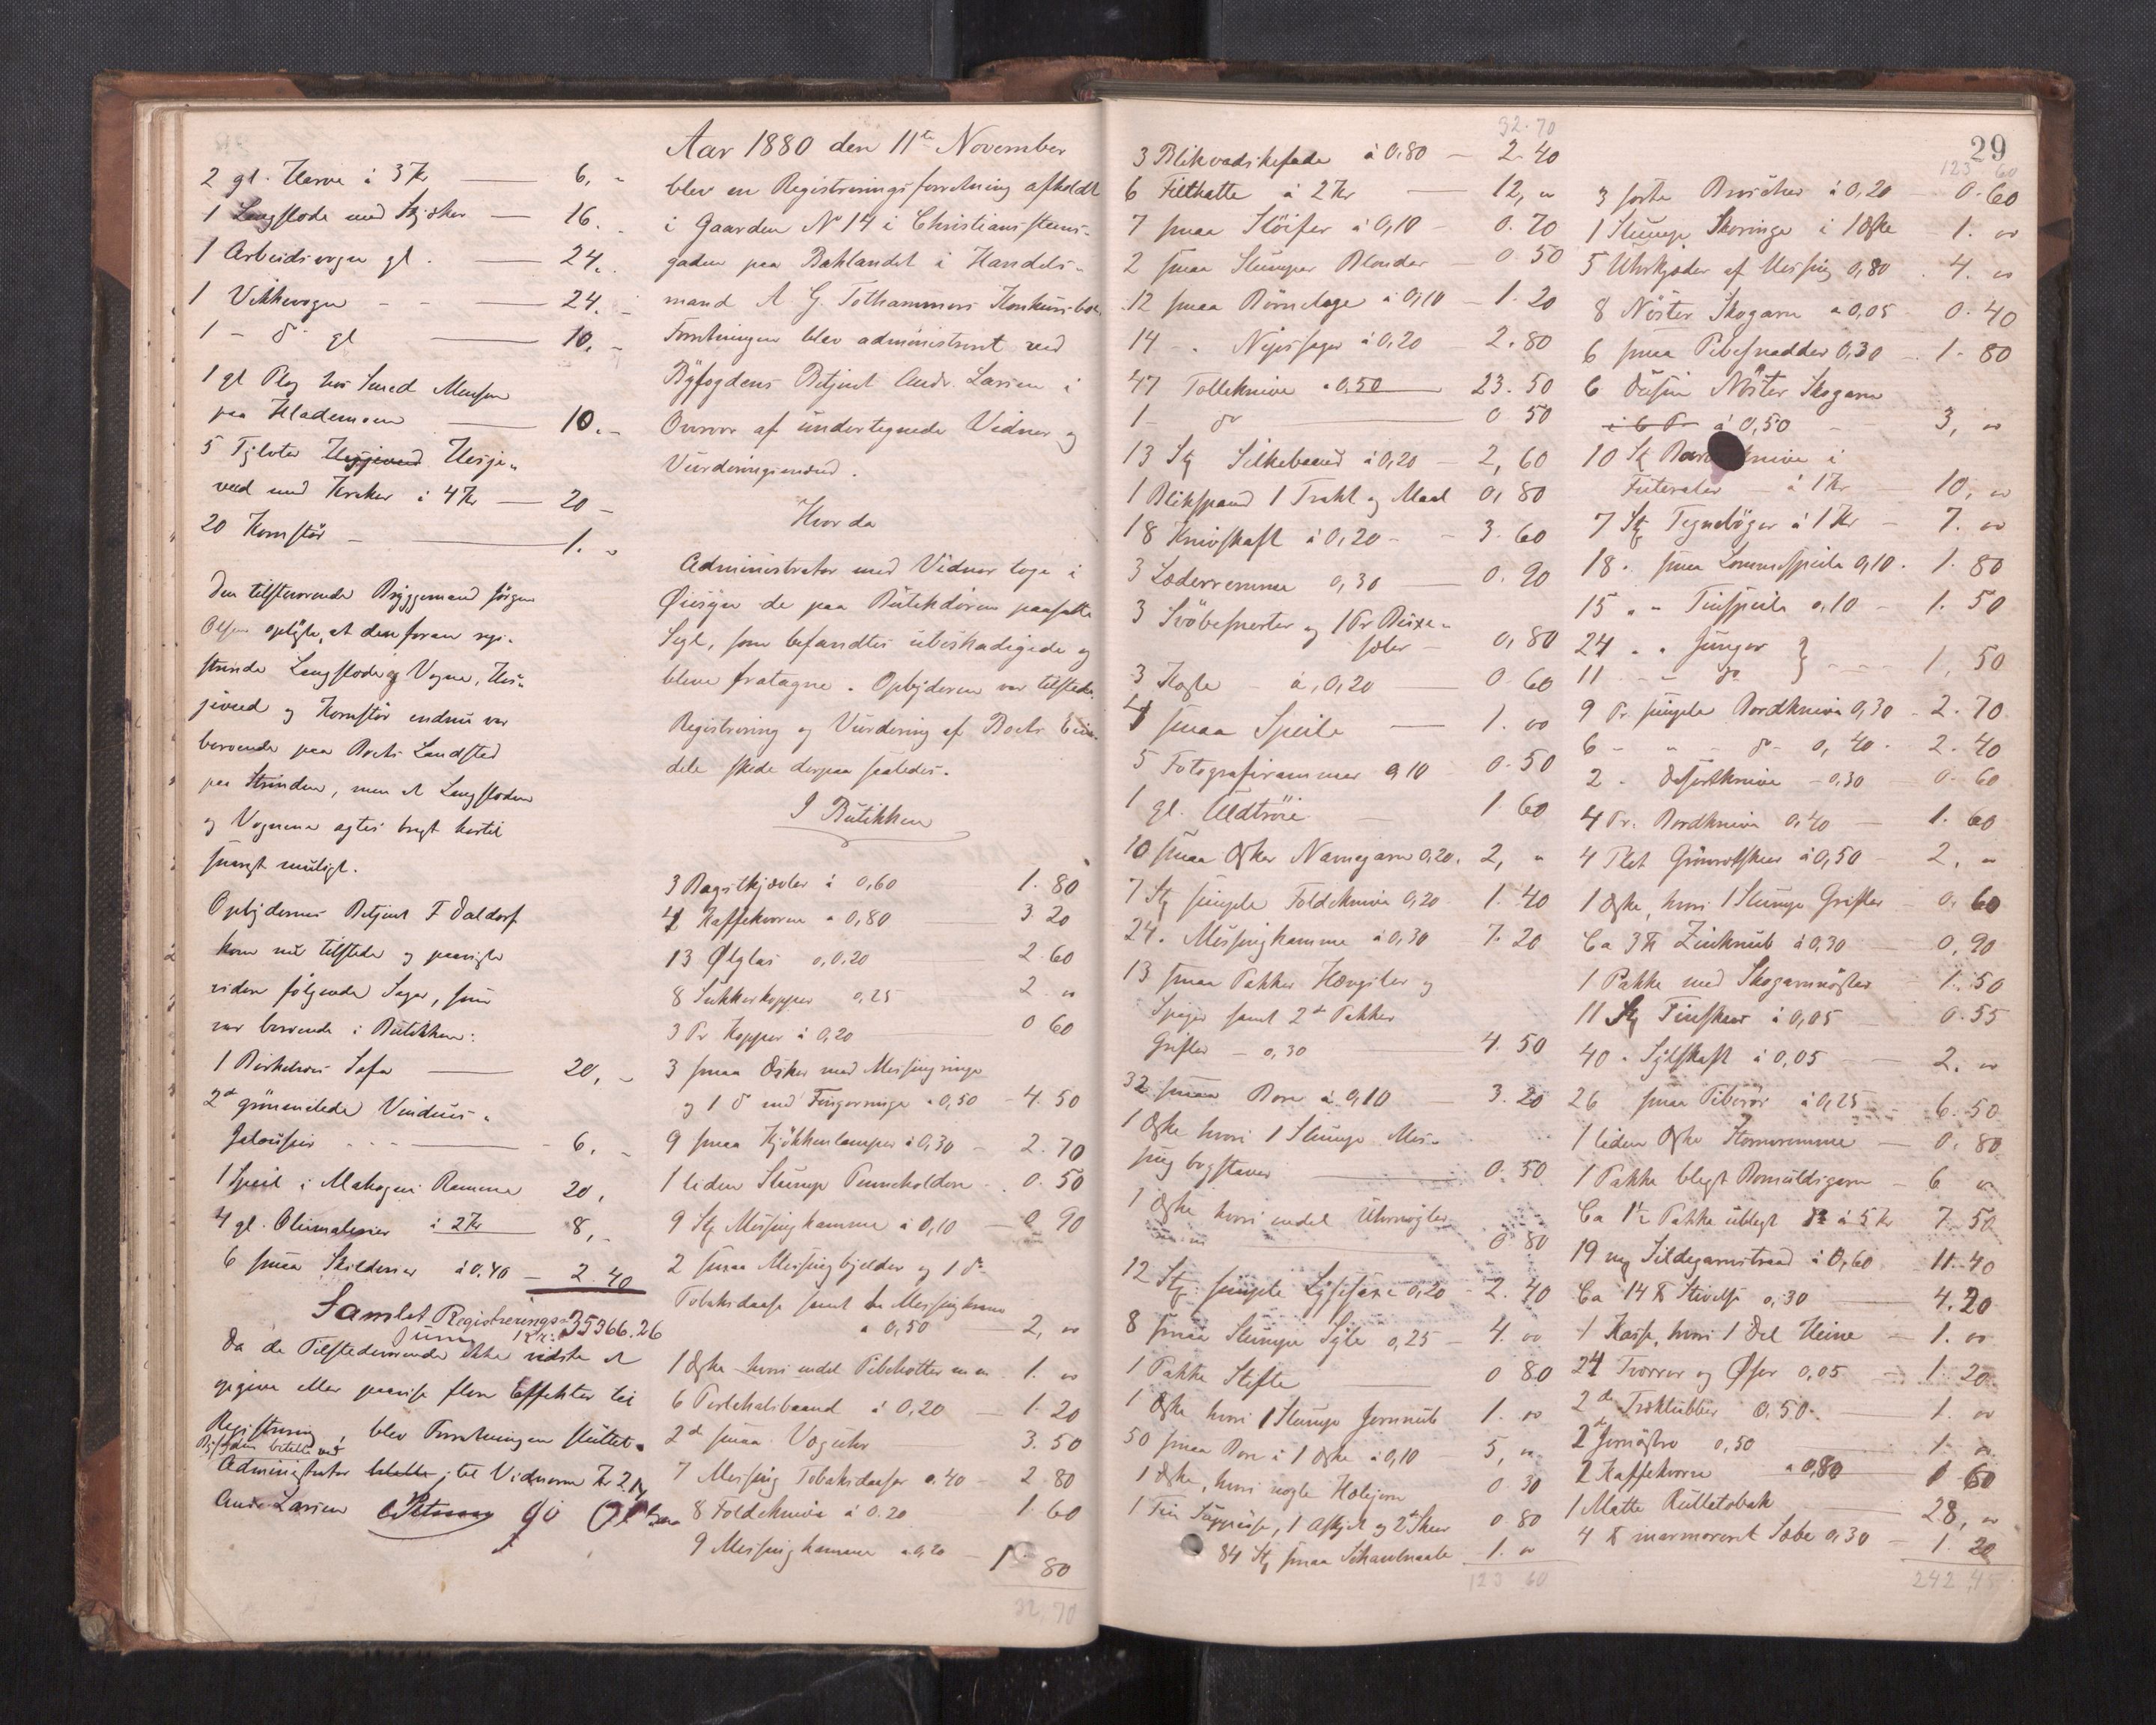 2 gl. Harve à 3 Kr 6, "
1 Langslæde med Skjæker 16. "
1 Arbeidsvogn gl. 24. "
1 Vikkevogn 24. "
1 - do gl 10. "
1 gl Plog hos Smed Monsen
paa Hlademoen 10. "
5 Tylvter Hesje-
ved med Kraker à 4 Kr 20 "
20 Kornstör 1. "
Den tilstæværende Bryggemand Jörgen
Olsen oplyste, at den foran regi-
strerede Langslæde og Vogne, Hes-
jeved og Kornstör endnu var
beroende paa Boets Landsted
paa Strinden, men at Langslæden
og Vognene agtes bragt hertil
snarest muligt.
Opbyderens Betjent F Daldorf
kom nu tilstede og paaviste
videre følgende Sager, som
var beroende i Butikken:
1 Birketræs Sofa 20, "
2de grönmalede Vindues-
Jalousier 6. "
1 Speil i Mahogni Ramme 20,
4 gl. Oliemalerier à 2 Kr 8, "
6 smaa Skilderier à 0,40 2. 40
Samlet Registrerings-
sum Kr: 35366.26
Da de Tilstedeværende ikke vidste at
opgive eller paavise flere Effekter til
Registrering, blev Forretningen sluttet.
Administrator betalte til Vidnerne Kr 2
Andr. Larsen C Petersen J O Olsen
Aar 1880 den 11te November
blev en Registreringsforretning afholdt
i Gaarden No 14 i Christianstens-
gaden paa Baklandet i Handels-
mand A G. Tothammers Konkursbo.
Forretningen blev administreret ved
Byfogdens Betjent Andr. Larsen i
Overvær af undertegnede Vidner og
Vurderingsmænd.
Hvorda
Administrator med Vidner toge i
Øiesyn de paa Butikdören paasatte
Segl, som befandtes ubeskadigede og
bleve fratagne. Opbyderen var tilstede.
Registrering og Vurdering af Boets Eien-
dele skede derpaa saaledes.
I Butikken
3 Bagstkjævler à 0,60 1. 80
4 Kaffekværne a 0,80 3 20
13 Ølglas a 0.20 2. 60
8 Sukkerkopper 0,25 2 "
3 Pr Kopper à 0,20 0 60
3 smaa Æsker med Messingringe
og 1 do med Fingerringe a 0,50 4. 50
9 smaa Kjökkenlamper à 0,30 2. 70
1 liden Slump Penneholdere 0. 50
9 Stk Messingkamme à 0,10 0 90
2 smaa Messingbjelder og 1 do
Tobaksdaase samt
a 0,50 2, "
1 Æske hvori endel Pibehatter m m 1. "
6 Perlehalsbaand à 0,20 1. 20
2de smaa Væguhr 3. 50
7 Messing Tobaksdaaser a. 40 2. 80
8 Foldeknive à 0.20 1. 60
9 Messingkamme a 0,20 1. 80
32. 70
32. 70
3 Blikvadskefade à 0,80 2. 40
6 Filthatte à 2 Kr 12, "
7 smaa Slöifer à 0,10 0. 70
2 smaa Slumper Blonder 0 50
12 smaa Börnetöge à 0,10 1. 20
14 - 0,20 2. 80
47 Tolleknive a 0,50 23. 50
1 do 0 50
13 Stk Silkebaand à 0,20 2, 60
1 Blikspand 1 Trakt og Maal 0, 80
18 Knivskaft à 0,20 3. 60
3 Læderremme 0,30 0. 90
3 Svöbesnerter og 1 Pr Buxe-
seler 0, 80
3 Koste à 0,20 0 60
4 smaa Speile 1. "
5 Fotografirammer 0,10 0. 50
1 gl. Uldtröie 1. 60
10 smaa Æsker Navnegarn 0,20. 2, "
7 Stk simple Foldeknive 0,20 1. 40
24. Messingkamme à 0,30 7. 20
13 smaa Pakker Hængsler og
Spiger samt 2de Pakker
Grifler 0,30 4. 50
32 smaa Bore à 0,10 3. 20
1 Æske hvori 1 Slump Mes-
sing bogstaver 0. 50
1 Æske hvori endel Uhrnögler
m m 0 80
12 Stk simple Lysesaxe 0,20 2. 40
8 smaa Slumper Syle 0,25 4. "
1 Pakke Stifte 0 80
1 Æske hvori 1 Slump Jernnub 1. "
50 smaa Bore i 1 Æske à 0,10 5, "
1 Æske, hvori nogle Höljern 0 30
1 Tin 1 Askjet og 2de Skeer 0. 80
84 Stk smaa 1. "
123 60
29
123 60
3 sorte Broscher à 0,20 0. 60
1 Slump Skoringe i 1 Æske 1. "
5 Uhrkjæder af Messing 0,80 4. "
8 Nöster Skogarn a 0,05 0. 40
6 smaa Pibesnadder 0,30 1. 80
6 Dusin Nöster Skogarn
à 0,50 3, "
10 Stk knive i
Futeraler à 1 Kr 10, "
7 Stk Tegnebøger à 1 Kr 7. "
18. smaa Lommespeile 0,10. 1. 80
15 " " Tinspeile 0,10 1. 50
24 " "
11 " " do 1, 50
9 Pr simple Bordknive 0,30 2. 70
6 - " - do - 0,40. 2. 40
2 - Desertknive - 0,30 0 60
4 Pr. Bordknive 0,40 1. 60
4 Plet à 0,50 2, "
1 Æske, hvori 1 Slump Grifler 0, 60
Ca 3 ℔ Zinknub à 0,30 0, 90
1 Pakke med Skogarnnöster 1. 50
11 Stk Tinskeer à 0,05 0. 55
40 " Sylskaft à 0,05 2. "
26 smaa Piberör à 0,25 6. 50
1 liden Æske 0, 80
1 Pakke blegt Bomuldsgarn 6 "
Ca 1½ Pakke ublegt do à 5 Kr 7. 50
19 Sildegarnstraad à 0,60 11. 40
Ca 14 ℔ Stivelse 0,30 4. 20
1 Kasse, hvori 1 Del Heine 1. "
24 Tvorrer og Øser 0,05 1 20
2de Træklubber 0,50 1. "
2 0,50 1. "
2 Kaffekværne a 0,80 1 60
1 Matte Rulletobak 28, "
4 ℔ marmoreret Sæbe 0,30 1. 20
242. 45